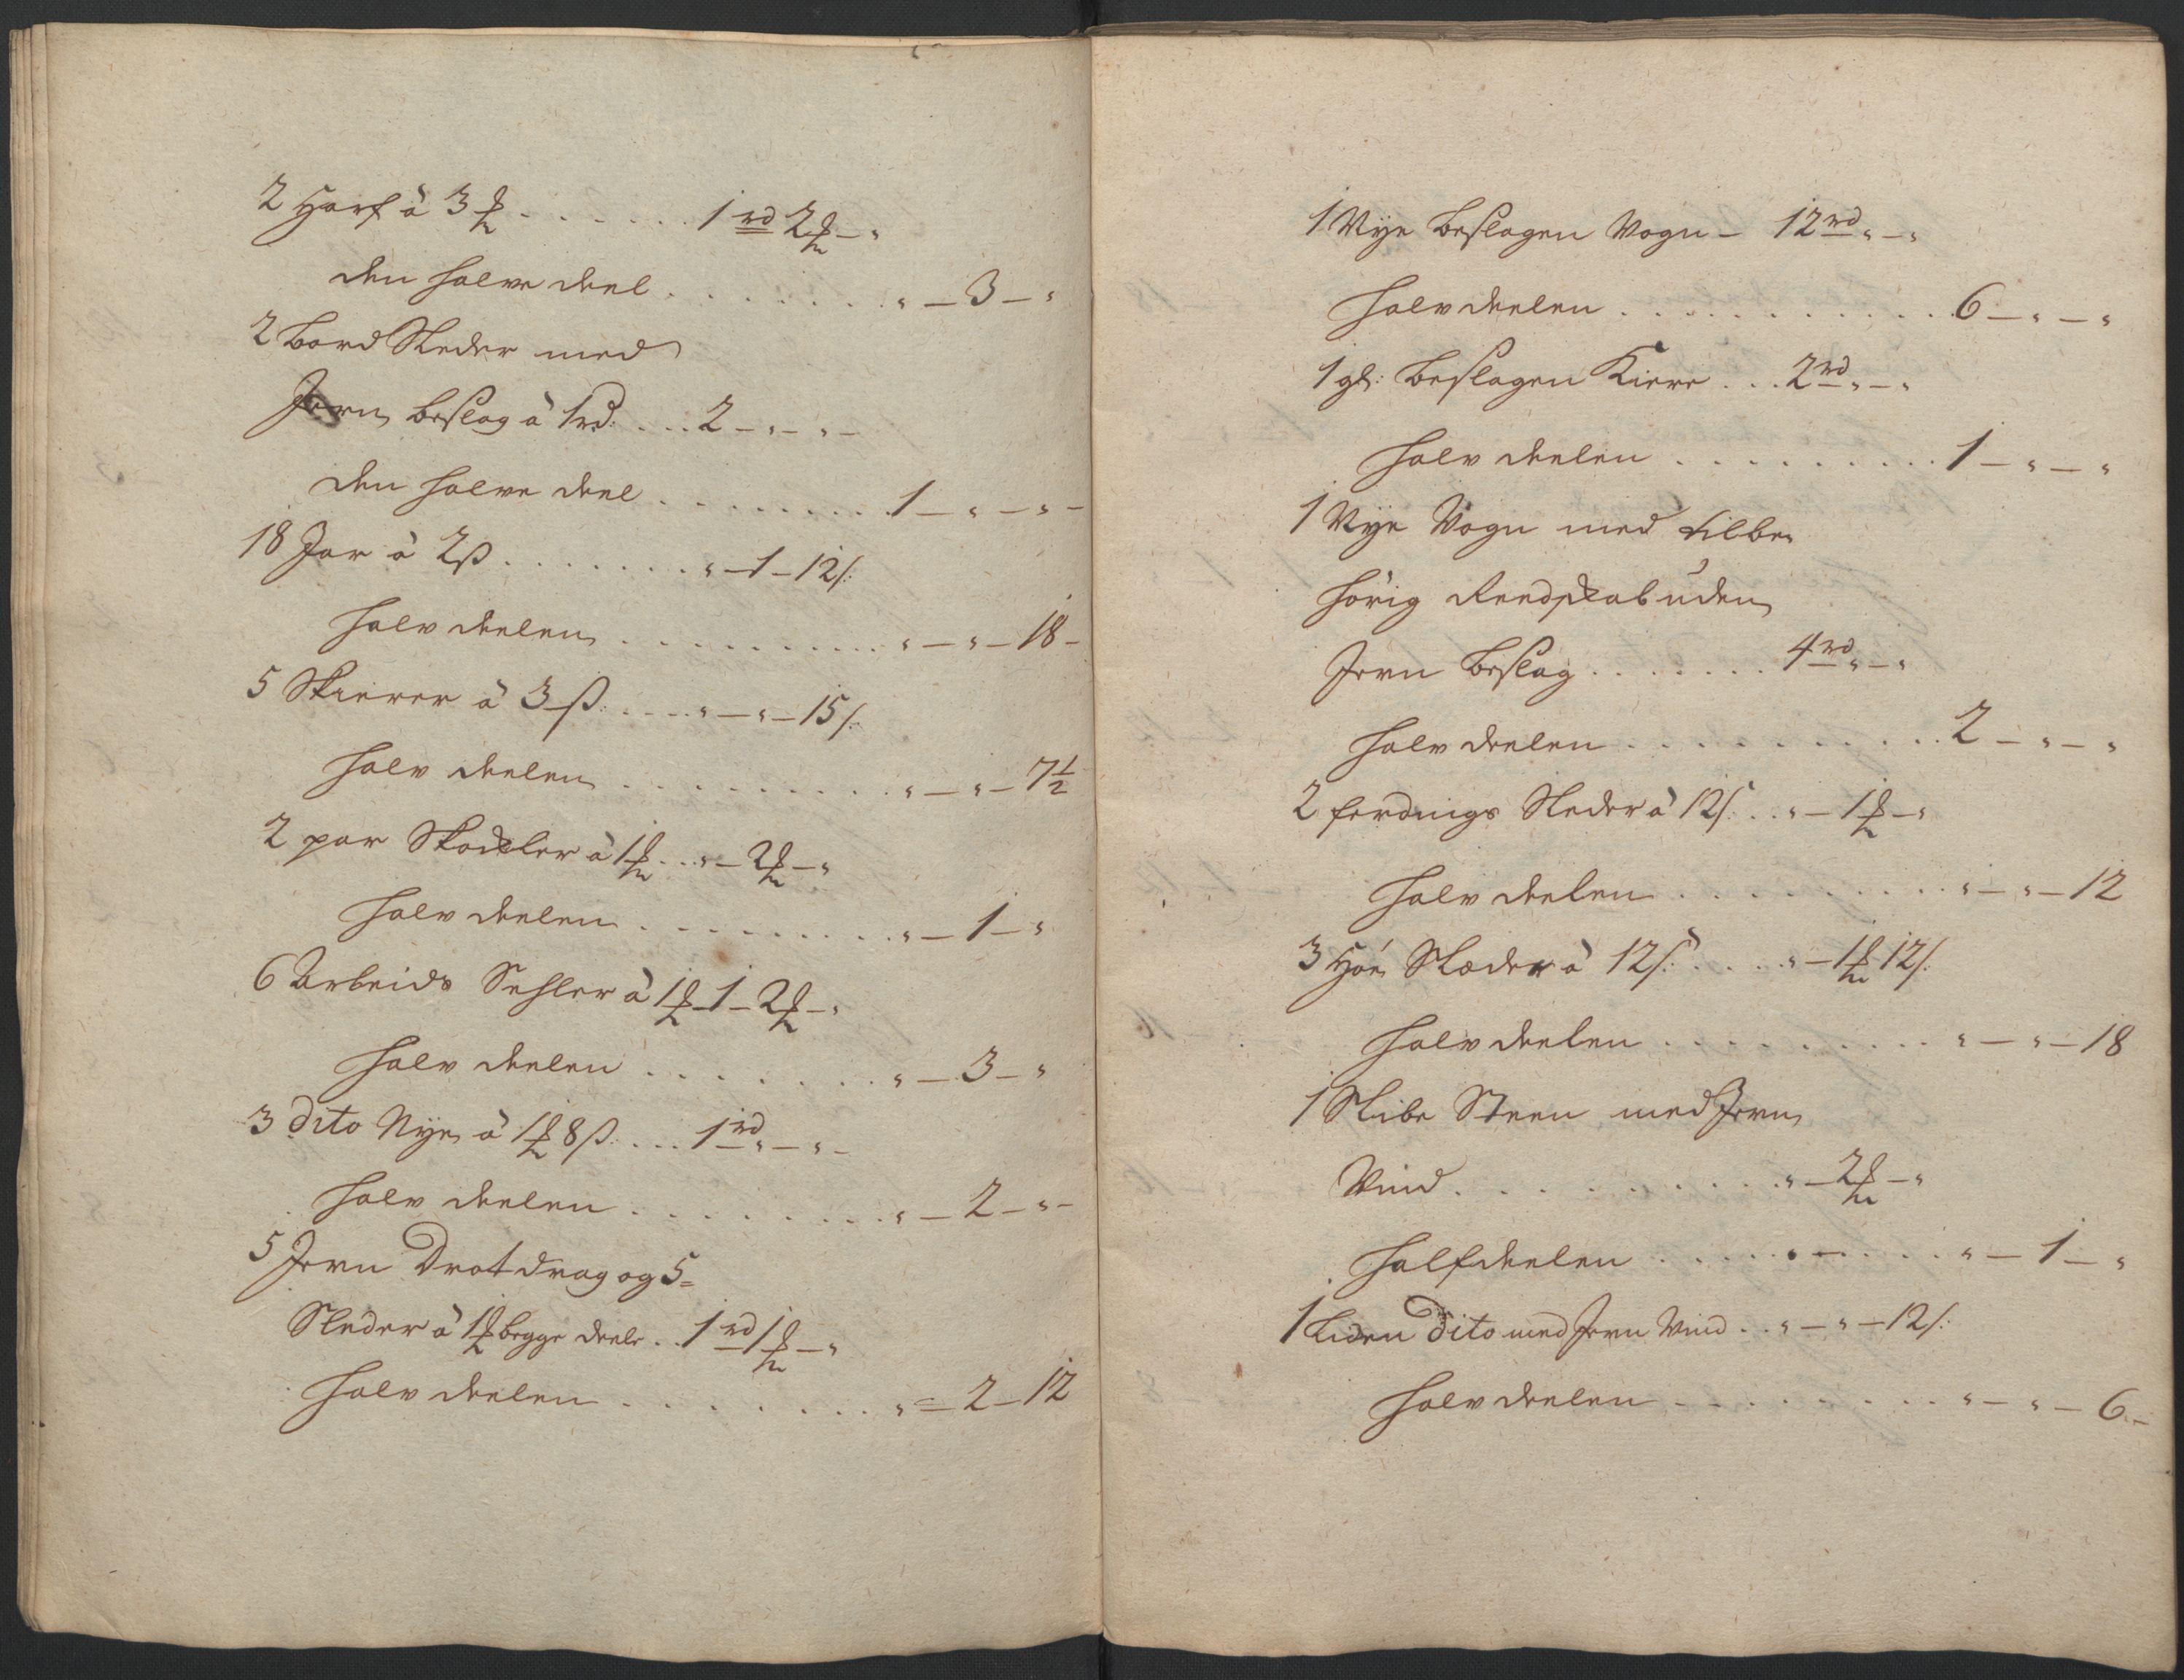 2 Harf à 3 ₰ . . . . . . . 1 rd 2 ₰ – "
den halve deel . . . . . . . . " – 3 – "
2 Bord Sleder med
Jern beslag à 1 rd: . . . 2 – " – " –
den halve deel . . . . . . . . . 1 – " – " –
18 Jar à 2 ß . . . . . . . " – 1 – 12 ß:
halv deelen . . . . . . . . . . . " – " – 18 –
5 Skierer à 3 ß: . . . . " – " – 15 ß:
halv deelen . . . . . . . . . . " – " – 7½
2 par Skockler à 1 ₰ . . . " – 2 ₰ – "
halv deelen . . . . . . . . . . " – 1 – "
6 Arbeids Sehler à 1 ₰ 1 – 2 ₰ – "
halv deelen . . . . . . . . " – 3 – "
3 dito Nye à 1 ₰ 8 ß: . . . 1 rd " – " –
halv deelen . . . . . . . . . " – 2 – " –
5 Jern Drat drag og 5 =
Sleder à 1 ₰ begge deele . . 1 rd 1 ₰ – "
halv deelen . . . . . . . . " = 2 – 12
1 Nye beslagen Vogn – 12 rd " – "
halv deelen . . . . . . . . . . . . 6 – " – "
1 gl: beslagen Kierre . . . 2 rd " – "
halv deelen . . . . . . . . . . 1 – " – "
1 Nye Vogn med tilbe=
hörig Reedskab uden
Jern beslag . . . . . . . 4 rd " – "
halv deelen . . . . . . . . . . . 2 – " – "
2 ferdings Sleder à 12 ß: . . " – 1 ₰ – "
halv deelen . . . . . . . . . . " – " – 12
3 Höe Slæder à 12 ß: . . . . " – 1 ₰ 12 ß:
halv deelen . . . . . . . . . . " – " – 18
1 Slibe Steen med Jern
Vind . . . . . . . . . . . " – 2 ₰ – "
halfdeelen . . . . . . . . . . " – 1 – "
1 Liden dito med Jern Vind . . " – " – 12 ß:
halv deelen . . . . . . . . . " – " – 6 –